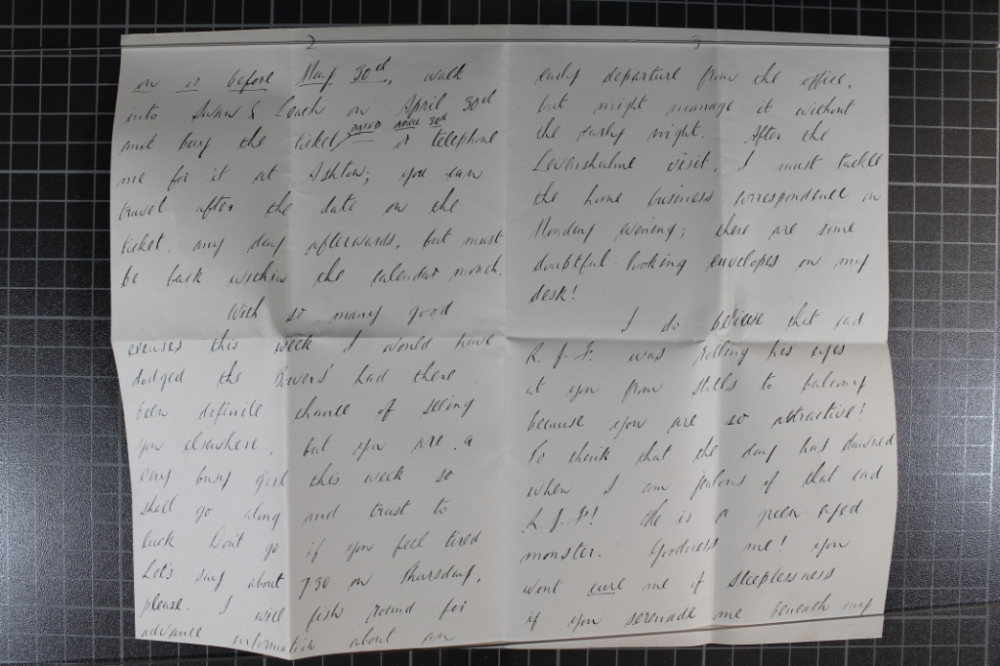 2
on or before May 30th, walk
into Swan & Leach on April 30th
and buy the ticket, DATED APRIL 30th or telephone
me for it at Ashton; you can
travel after the date on the
ticket, any day afterwards, but must
be back within the calendar month.
With so many good
excuses this week I would have
dodged the Owens' had there
been definite chance of seeing
you elsewhere, but you are a
very busy girl this week so
shall go along and trust to
luck Don't go if you feel tired
Let's say about 7.30 on Thursday,
please. I will fish round for
advance information about an
3
early departure from the office,
but might manage it without
the early night. After the
Levenshulme visit, I must tackle
the home business correspondence on
Monday evening; there are some
doubtful-looking envelopes on my
desk!
I do believe that cad
R. J. F. was rolling his eyes
at you from stalls to balcony
because you are so attractive!
To think that the day has dawned
when I am jealous of that cad
R. J. F! He is a green-eyed
monster. Goodness me! you
wont cure me of sleeplessness
if you serenade me beneath my